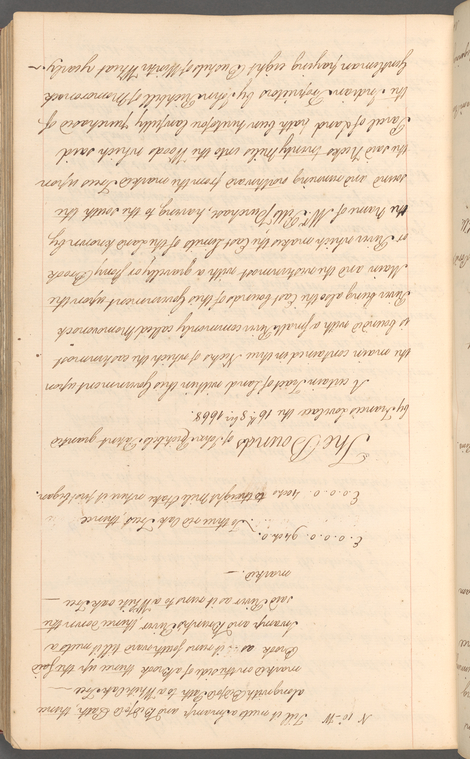 N 10 - W Till it meets a Swamp and Bedford Path, thence
along with Bedford Path to a White oake Tree —
marked on the side of a Brook thence up the said
Brook as it runs southward till it meets a
Swamp and Brunks's River, thence down the
said River as it runs to a White oak Tree —
marked. —
E. 0. 0. 0.
To three red oak Trees, thence
E. 0. 0. 0. to the eight mile stake where it first began.
The Bounds of John Richbells Patent granted
by Francis Lovelace the 16th 8br 1668.
A certain Tract of Land within this Government upon
the main contained in three Necks of which the eastermost
is bound with a small River commonly called Momoronock
River being also the East bounds of this Government upon the
Main and the westermost with a gravelly or stony Brook
or River which makes the East Limits of the Land known by
the Name of Mr Pells Purchase, having to the south the
sound and running northward from the marked Trees upon
the said Necks twenty Miles into the Woods which said
Parcel of Land hath been heretofore lawfully purchased of
the Indian Proprietors by John Richbill of Momoronock
Gentleman paying eight Bushels of Winter Wheat yearly. —